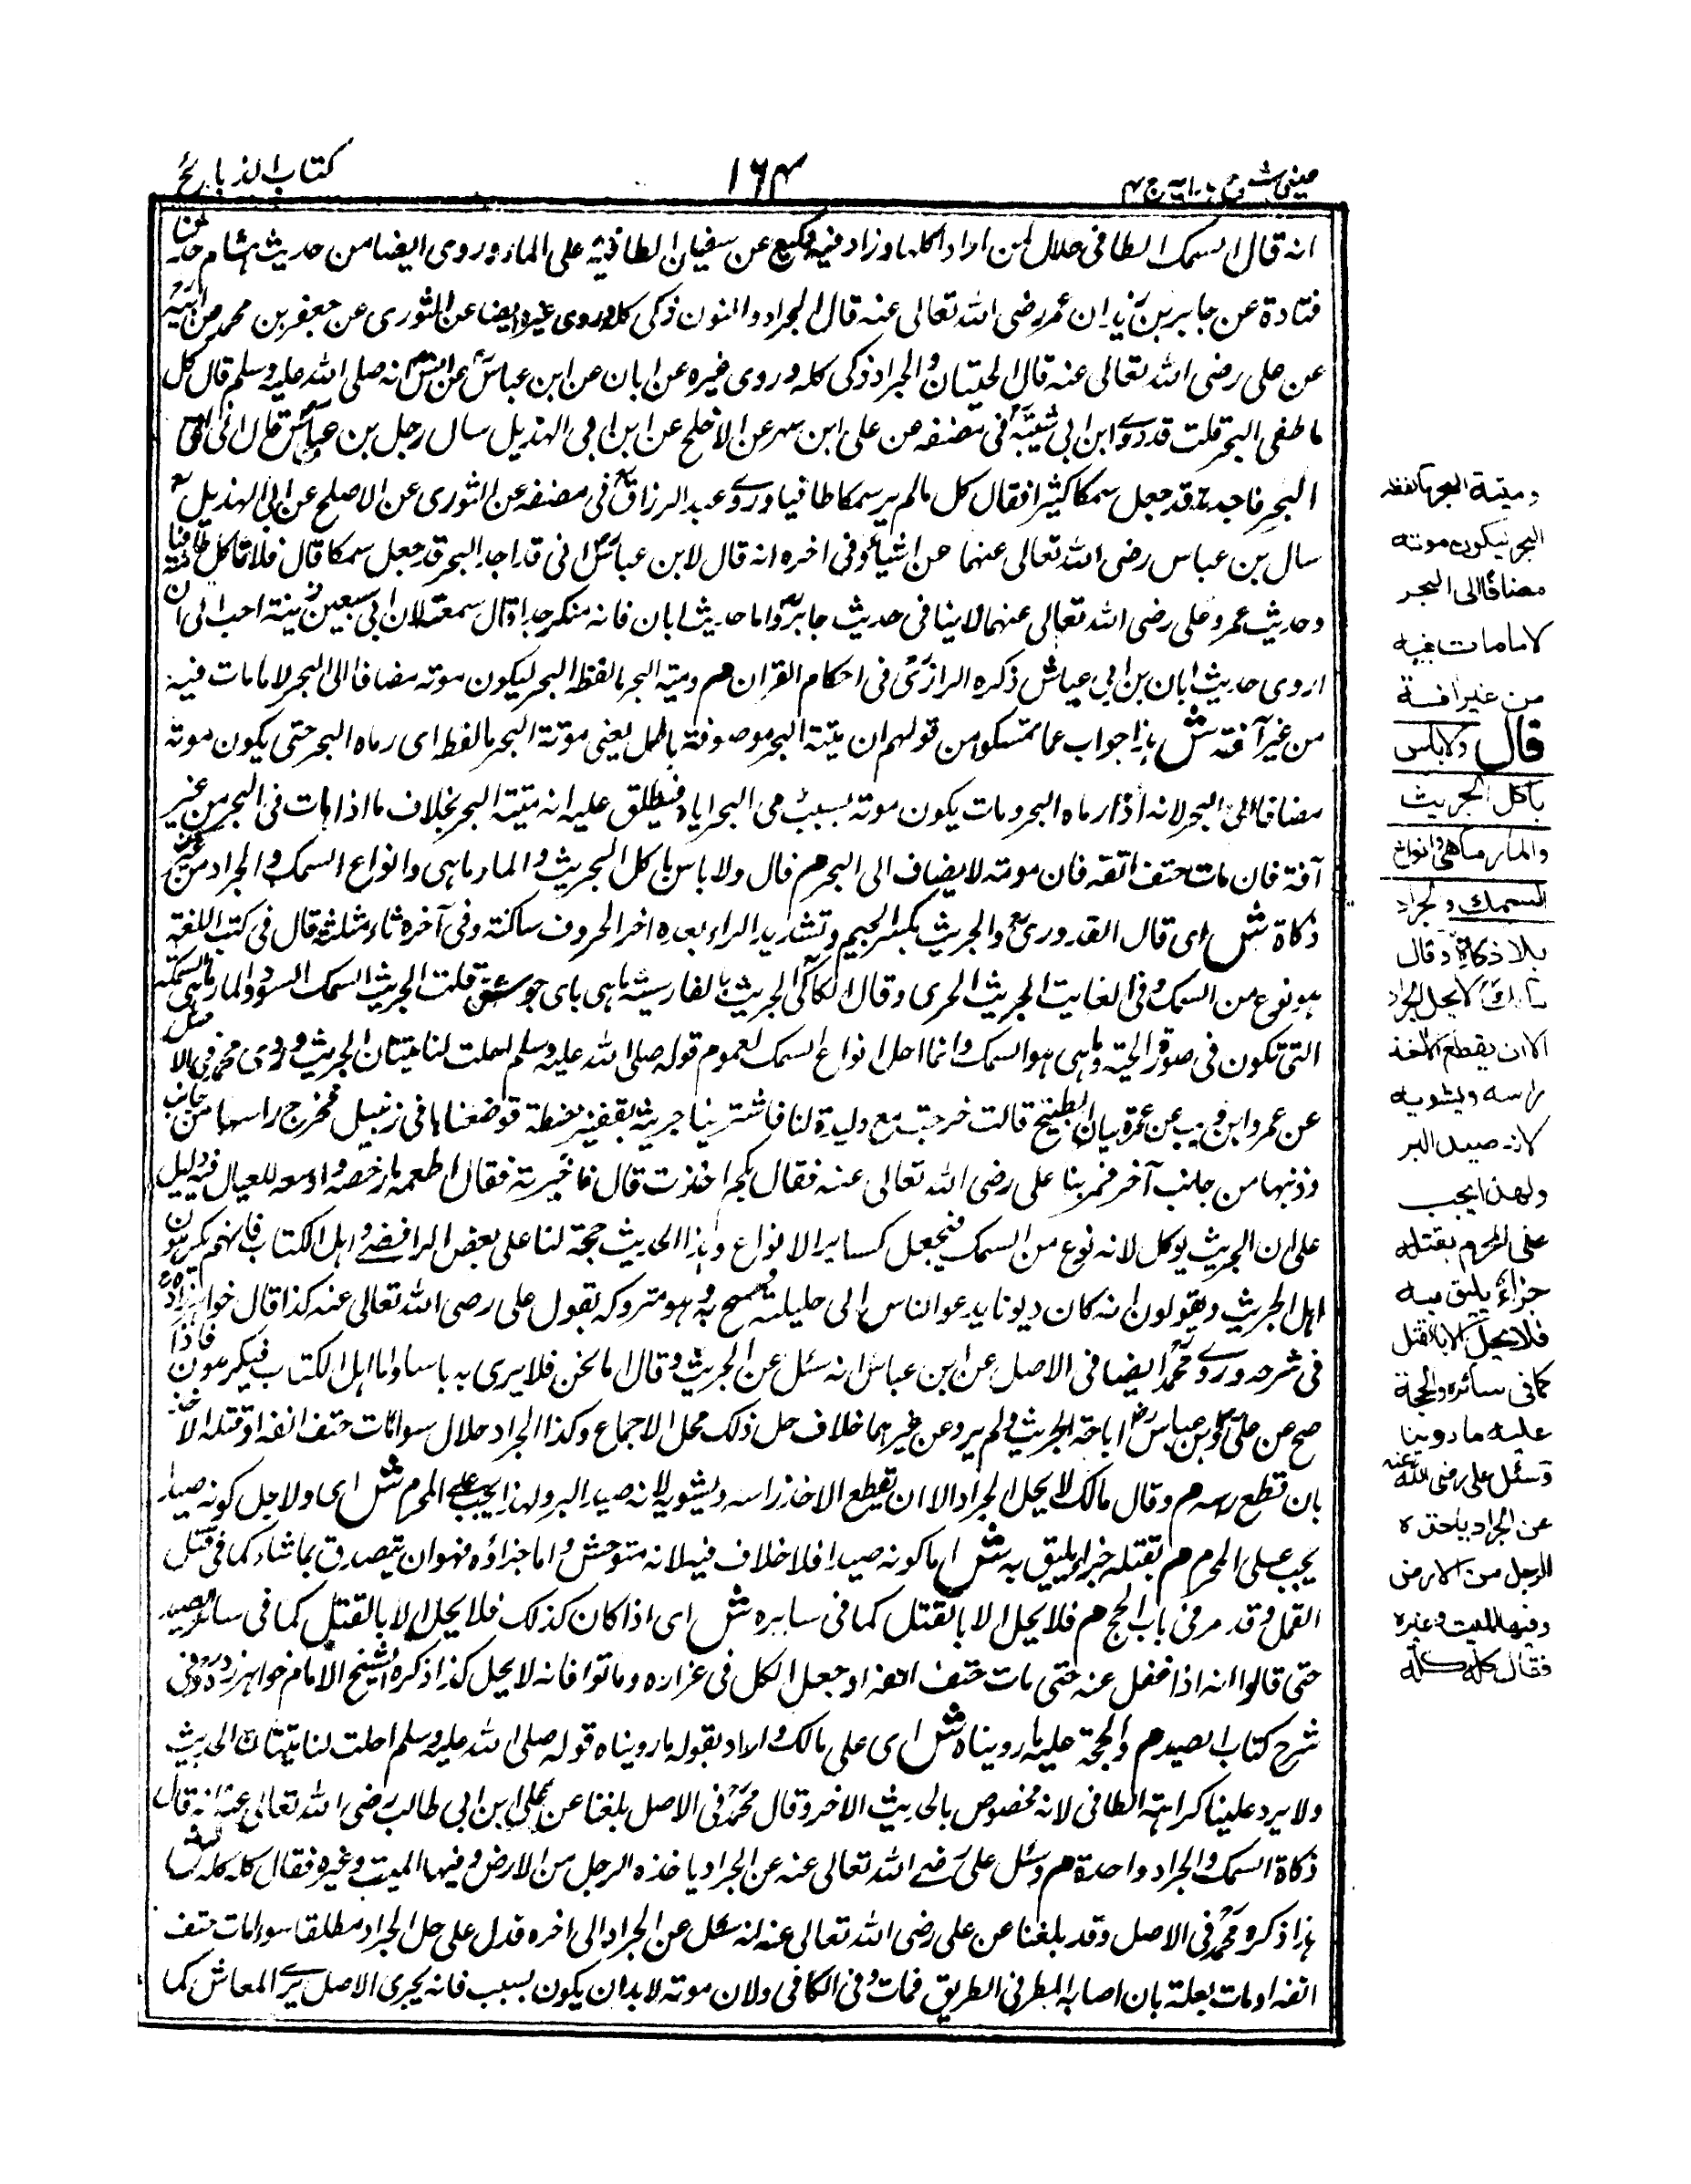 عینی شرح ہدایہ ج ۴
۱۶۴
کتاب الذبایح
انه قال السمک الطافی حلال لمن اراد اکلها وزاد فیه وکیع عن سفیان الطافیة علی الماء وروی ایضا من حدیث ہشام حدثنا
قتادة عن جابر بن زید ان عمر رضی الله تعالی عنه قال الجراد والنون ذکی کله وروی غیره ایضا عن الثوری عن جعفر بن محمد عن ابیه
عن علی رضی الله تعالی عنه قال الحیتان والجراد ذکی کله وروی غیره عن ابان عن ابن عباس عن انس انه صلی الله علیه وسلم قال کل
ما طفی البحر قلت قد روے ابن ابی شیبة فی مصنفه عن علی ابن مسهر عن الاجلح عن ابن ابی الهذیل سال رجل بن عباس قال انی اتی
البحر فاجده قد جعل سمکا کثیرا فقال کل مالم یر سمکا طافیا وروے عبد الرزاق فی مصنفه عن الثوری عن الاصلح عن ابی الهذیل
سال بن عباس رضی الله تعالی عنهما عن اشیاء وفی اخره انه قال لابن عباس انی قد اجد البحر قد جعل سمکا قال فلا تاکل طافیا
وحدیث عمر وعلی رضی الله تعالی عنهما لا ینافی حدیث جابر واما حدیث ابان فانه منکر جدا وقال سمعته لان ابی سبعین زینة احب الی ان
اروی حدیث ابان بن ابی عیاش ذکره الرازی فی احکام القران م ومیتة البحر ما لفظه البحر لیکون موته مضافا الی البحر لا مامات فیه
من غیر آفة ش هذا جواب عما تمسکو من قولهم ان میتة البحر موصوفة بالحل یعنی موتة البحر ما لفظه ای رماه البحر حتی یکون موته
مضافا الی البحر لانه اذا رماه البحر ومات یکون موته بسبب رمی البحر ایاه فیطلق علیه انه میتة البحر بخلاف ما اذا مات فی البحر من غیر
آفة فان مات حتف انفه فان موته لا یضاف الی البحر م قال ولا باس باکل الجریث والمار ماہی وانواع السمک والجراد من غیر
ذکاة ش ای قال القدوری والجریث بکسر الجیم وتشدید الراء بعده اخر الحروف ساکنة وفی آخره ثاء مثلثة قال فی کتب اللغة
هو نوع من السمک وفی الغایت الجریث الجری وقال الکاکی الجریث بالفارسیة ماہی بای قلت الجریث السمک السود والمار ماہی السمکة
التی تکون فی صورة الحیة وماہی هو السمک وانما احل انواع السمک لعموم قوله صلی الله علیه وسلم احلت لنا میتتان الجریث وروی محمد فی الاصل
عن عمرو ابن وهب عن عمرة بیان البطیخ قالت خرجت مع ولیدة لنا فاشترینا جریثة بقفیز حنطة فوضعناها فی زنبیل فخرج راسها من جانب
وذنبها من جانب آخر فمر بنا علی رضی الله تعالی عنه فقال بکم اخذت قال فاخبرته فقال اطعمه ما رخصه واوسعه للعیال فیه دلیل
علی ان الجریث یوکل لانه نوع من السمک فیجعل کسایر الانواع وهذا الحدیث حجة لنا علی بعض الرافضة واهل الکتاب فانهم یکرهون
اهل الجریث ویقولون انه کان دیوثا یدعو الناس الی حلیلته فمسخ به وهو متروکه بقول علی رضی الله تعالی عنه کذا قال خواهر زاده
فی شرحه وروے محمد ایضا فی الاصل عن ابن عباس انه سئل عن الجریث وقال اما نحن فلا یری به باسا واما اهل الکتاب فیکرهون فاذا
صح عن علی وبن عباس اباحة الجریث ولم یرد عن غیرهما خلاف حل ذلک محل الاجماع وکذا الجراد حلال سوا مات حتف انفه او قتله الاخذ
بان قطع راسه م وقال مالک لا یحل الجراد الا ان یقطع الاخذ راسه ویشویه لانه صید البر ولهذا یجب علی المحرم ش ای ولاجل کونه صیدا
یجب علی المحرم م بقتله جزاء یلیق به ش اما کونه صیدا فلا خلاف فیه لانه متوحش واما جزاؤه فهو ان یتصدق بما شاء کما فی قتل
القمل وقد مر فی باب الحج م فلا یحل الا بالقتل کما فی سایره ش ای اذا کان کذلک فلا یحل الا بالقتل کما فی سائر الصید
حتی قالوا انه اذا غفل عنه حتی مات حتف انفه او جعل الکل فی غراره وماتوا فانه لا یحل کذا ذکره الشیخ الامام خواهر زاده فی
شرح کتاب الصید م والحجة علیه ما رویناه ش ای علی مالک والمراد بقوله ما رویناه قوله صلی الله علیه وسلم احلت لنا میتتان الحدیث
ولا یرد علینا کراهة الطافی لانه مخصوص بالحدیث الاخر وقال محمد فی الاصل بلغنا عن علی ابن ابی طالب رضی الله تعالی عنه انه قال
ذکاة السمک والجراد واحدة م وسئل علی رضے الله تعالی عنه عن الجراد یاخذه الرجل من الارض وفیها المیت وغیره فقال کله کله ش
هذا ذکره محمد فی الاصل وقد بلغنا عن علی رضی الله تعالی عنه انه سئل عن الجراد الی اخره فدل علی حل الجراد مطلقا سواء مات حتف
انفه او مات بعلة بان اصابه المطر فی الطریق فمات وفی الکافی ولان موته لا بد ان یکون بسبب فانه بحری الاصل بری المعاش کما
ومیتة البحر ما لفظه
البحر لیکون موته
مضافا الی البحر
لا مامات فیه
من غیر افة
قال ولا باس
باکل الجریث
والمار ماهی وانواع
السمک والجراد
بلا ذکاة وقال
مالک لا یحل الجراد
الا ان یقطع الاخذ
راسه ویشویه
لانه صید البر
ولهذا یجب
علی المحرم بقتله
جزاء یلیق به
فلا یحل الا بالقتل
کما فی سائره والحجة
علیه ما روینا
وسئل علی رضی الله عنه
عن الجراد یاخذه
الرجل من الارض
وفیها المیت وغیره
فقال کله کله